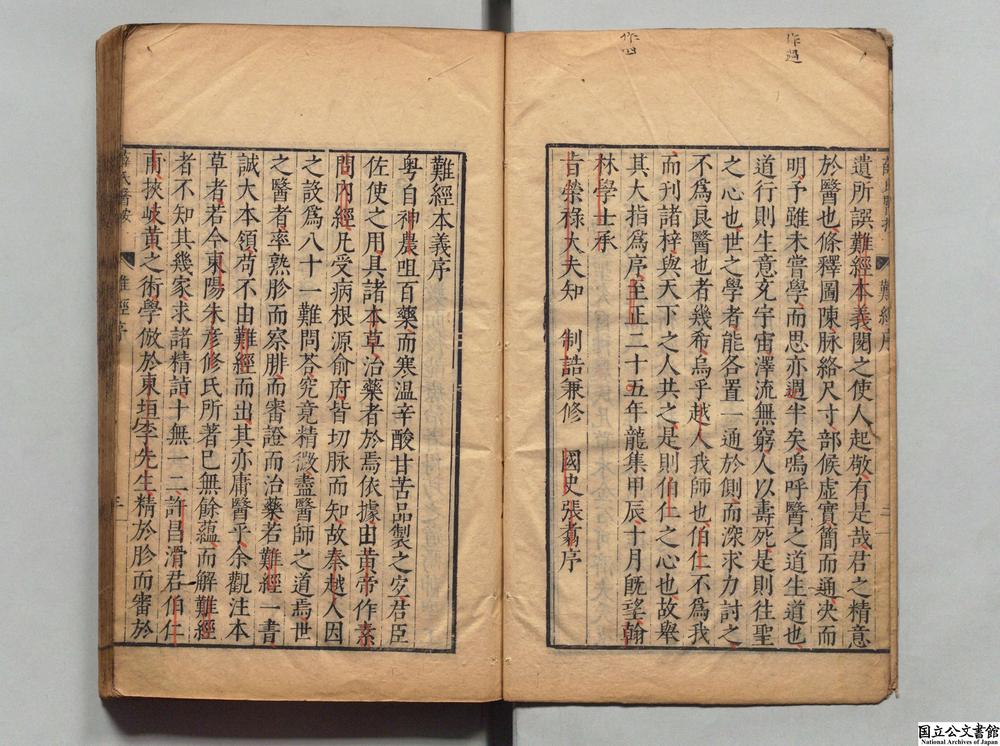 作四
作過
遺所誤難經本義閱之使人起敬有是哉君之精意
於醫也條釋圖陳脉絡尺寸部候虛實簡而通决而
明予雖未嘗學而思亦過半矣嗚呼醫之道生道也
道行則生意充宇宙澤流無窮人以壽死是則往聖
之心也世之學者能各置一通於側而深求力討之
不爲良醫也者幾希烏乎越人我師也伯仁不爲我
而刊諸梓與天下之人共之是則伯仁之心也故舉
其大指爲序至正二十五年龍集甲辰十月既望翰
林學士承
旨榮祿大夫知 制誥兼修 國史張翥序
難經序
難經本義序
粤自神農咀百藥而寒溫辛酸甘苦品製之宐君臣
佐使之用具諸本草治藥者於焉依據由黃帝作素
問內經凡受病根源俞府皆切脉而知故秦越人因
之設爲八十一難問荅究竟精微盡醫師之道焉世
之醫者率熟胗而察脉而審證而治藥若難經一書
誠大本領苟不由難經而出其亦庸醫乎余觀注本
草者若今東陽朱彥修氏所著已無餘蘊而解難經
者不知其幾家求諸精詣十無一二許昌滑君伯仁
甫挾岐黃之術學倣於東垣李先生精於胗而審於
薛氏醫按
難經序
国立公文書館
National Archives of Japan